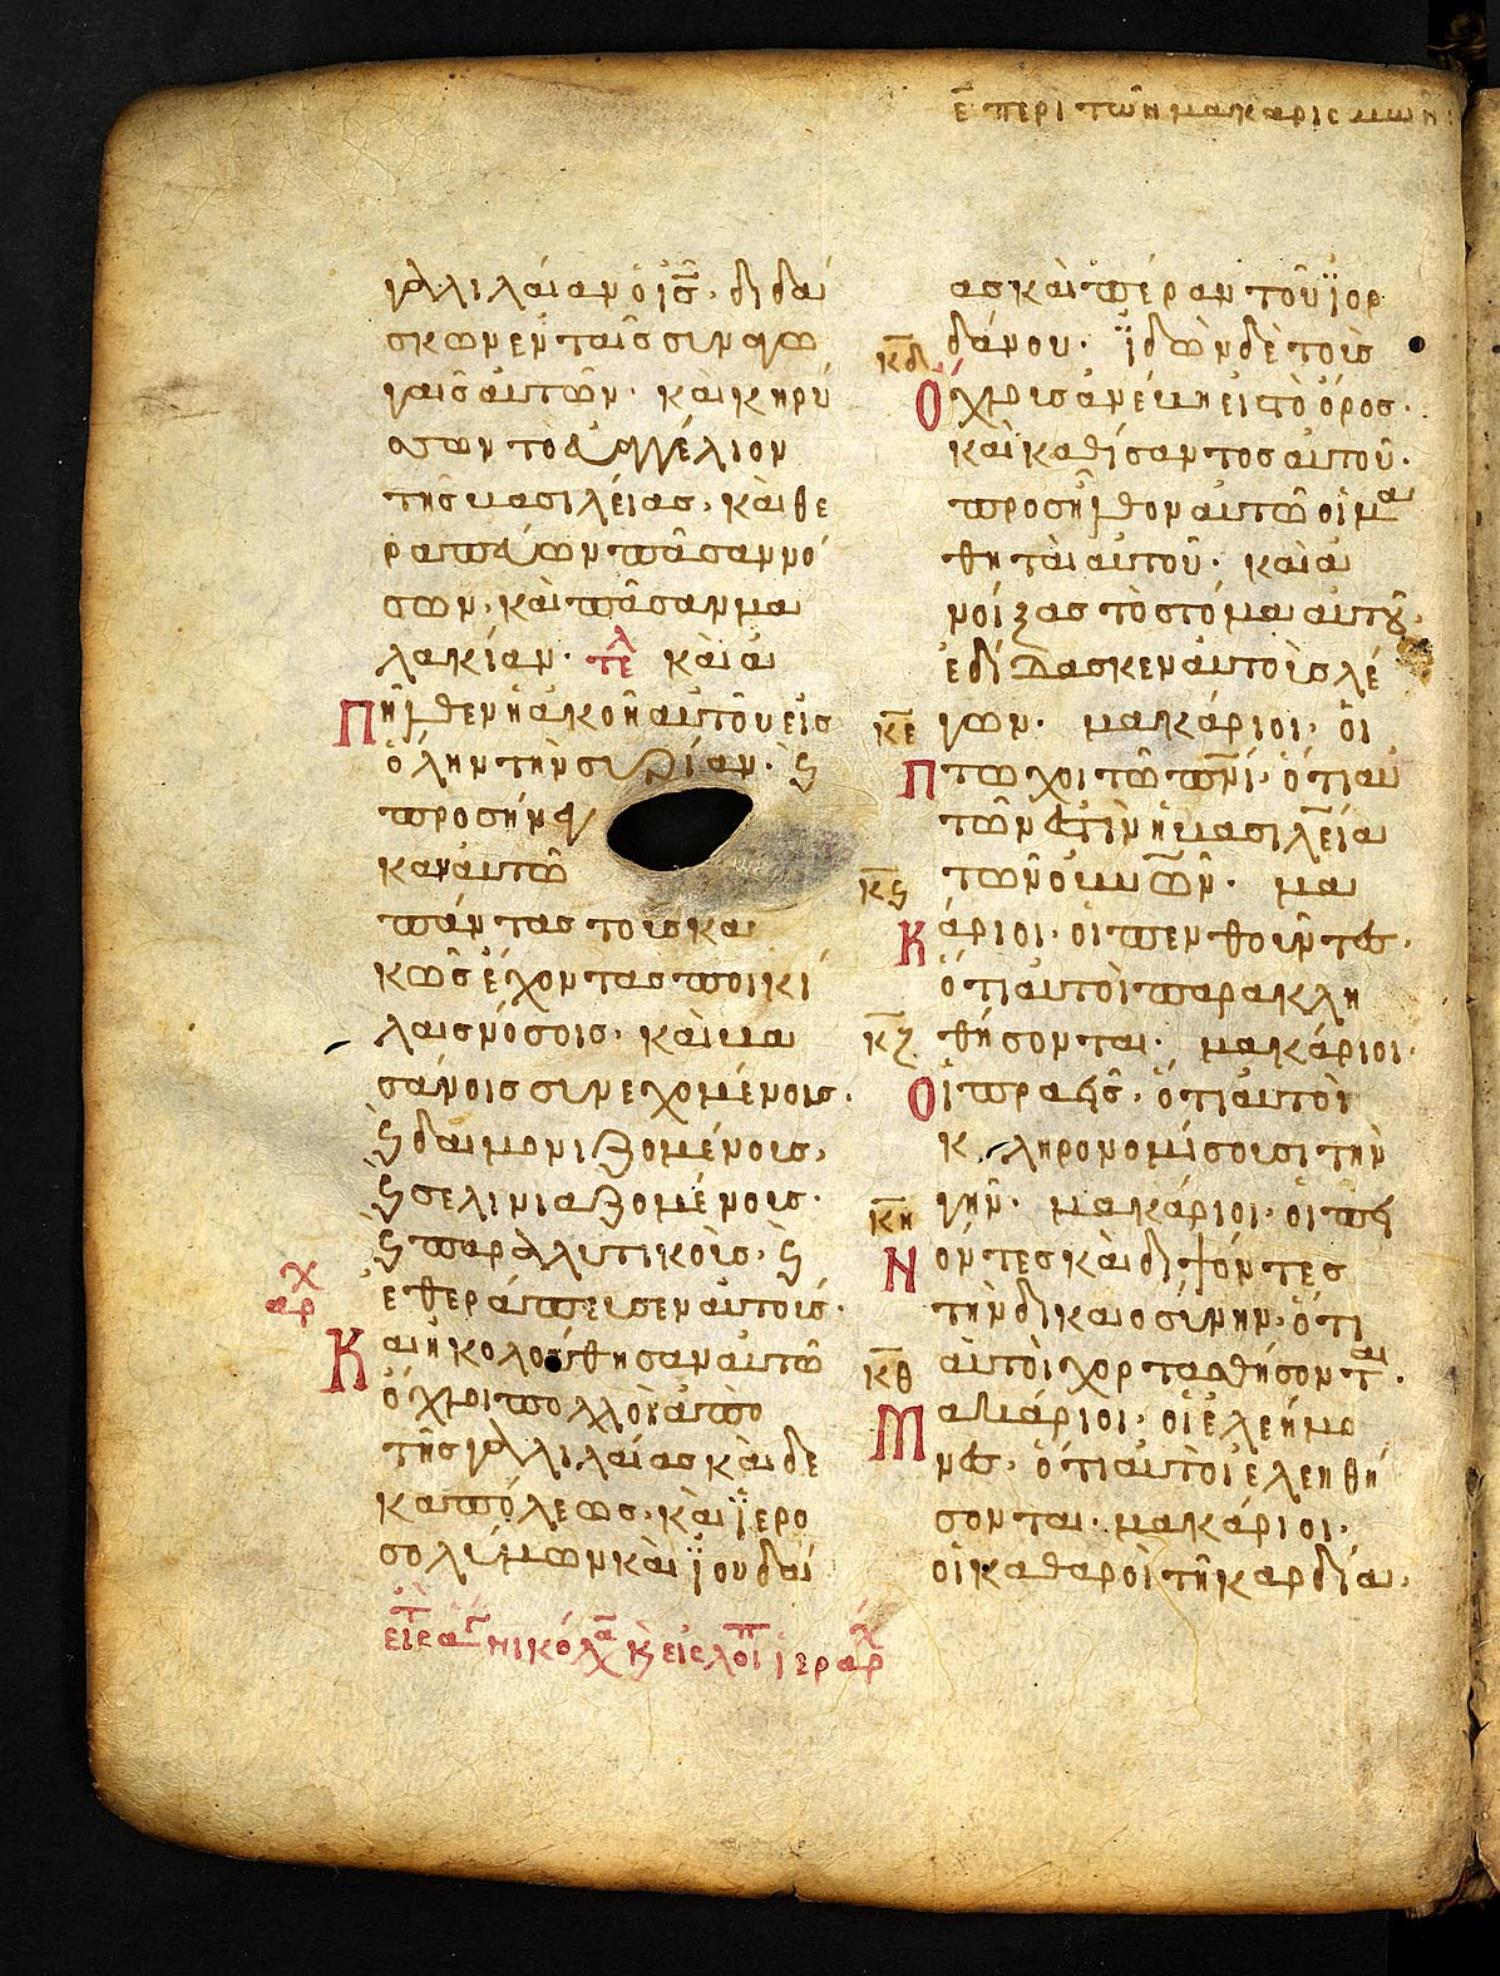 ε̄ περι τῶν μακαρισμῶν:
γαλιλαίαν ὁ ι̅ς̅· διδα
σκων ἐν ταῖς συναγω
γαῖς αὐτῶν· καὶ κηρύ
σσων τὸ εὐαγγέλιον
τῆς βασιλείας· καὶ θε
ραπεύων πᾶσαν νό
σων· καὶ πᾶσαν μα
λακίαν· τε̅λ καὶ ἀ
Πῆλθεν ἡ ἀκοὴ αὐτοῦ εἰς
ὅλην τὴν συρίαν· ϗ
προσήνεγ
καν αὐτῶ
πάντας τοὺς κα
κῶς ἔχοντας ποικί
λαις νόσοις· καὶ βα
σάνοις συνεχομένους·
ϗ δαιμονιζομένους·
ϗ σεληνιαζομένους·
ϗ παραλλυτικούς· ϗ
ἐθεράπευσεν αὐτούς·
αρχ
Και ἠκολούθησαν αὐτῶ
ὄχλοι πολλοὶ ἀπὸ
τῆς γαλιλαίας καὶ δε
καπόλεως· καὶ ϊερο
σολύμων καὶ ϊουδαί
ας καὶ πέραν τοῦ ϊορ
δάνου· ϊδὼν δὲ τοὺς
κ̅δ̅
Ὄχλους ἀνέβη εἰς τὸ ὄρος·
καὶ καθίσαντος αὐτοῦ·
προσῆλθον αὐτῶ οἱ μα
θηταὶ αὐτοῦ· καὶ ἀ
νοίξας τὸ στόμα αὐτοῦ·
ἐδίδασκεν αὐτοὺς λέ
κ̅ε̅ γων· μακάριοι· οἱ
Πτωχοι τῶ π̅ν̅ι̅· ὅτι αὐ
τῶν ἐστὶν ἡ βασιλεία
κ̅ϛ̅ τῶν ο̅υ̅ν̅ῶ̅ν̅· μα
Κάριοι· οἱ πενθοῦντες·
ὅτι αὐτοὶ παρακλη
κ̅ζ̅ θήσονται· μακάριοι·
Οἱ πραεῖς· ὅτι αὐτοὶ
κληρονομίσουσι τὴν
κ̅η̅ γῆν· μακάριοι· οἱ πει
Νόντες καὶ διψόντες
τὴν δικαιοσύνην· ὅτι
κ̅θ̅ αὐτοὶ χορτασθήσονται·
Μακάριοι· οἱ ἐλεήμο
νες· ὅτι αὐτοὶ ἐλεηθή
σονται· μακάριοι·
οἱ καθαροὶ τῆ καρδία·